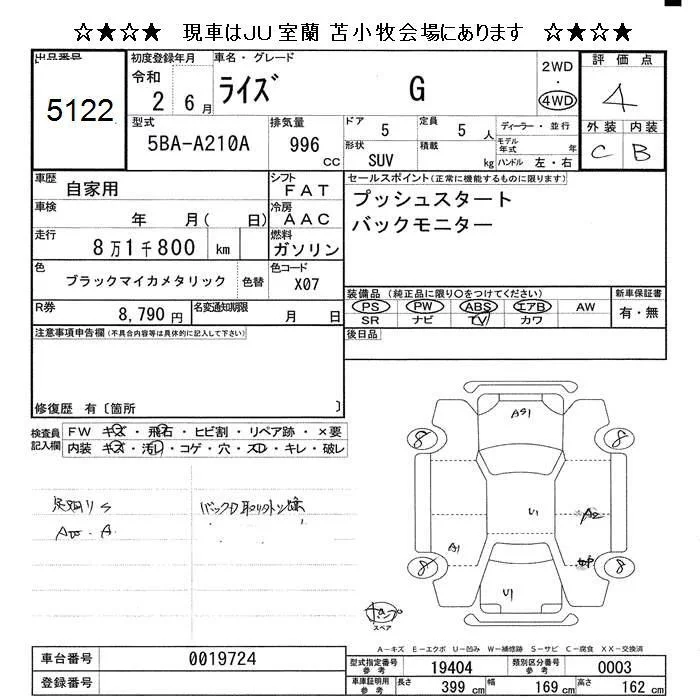 ☆★☆★ 現車はJU室蘭 苫小牧会場にあります ☆★☆★
出品番号
5122
初度登録年月
令和
2 6月
車名・グレード
ライズ G
2WD
・
4WD
評価点
4
外装 内装
C B
型式
5BA-A210A
排気量
996
cc
ドア
5
定員
5 人
形状
SUV
積載
kg
ディーラー・並行
モデル
年式 年
ハンドル 左・右
車歴
自家用
シフト
FAT
車検
年 月( 日)
冷房
AAC
走行
8万1千800 km
燃料
ガソリン
色
ブラックマイカメタリック
色替
色コード
X07
R券
8,790円
名変通知期限
月 日
セールスポイント(正常に機能するものに限ります)
プッシュスタート
バックモニター
装備品 (純正品に限り○をつけてください)
PS PW ABS エアB AW
SR ナビ TV カワ
新車保証書
有・無
後日品
注意事項申告欄(不具合内容等は具体的に記入して下さい)
修復歴 有〔箇所 〕
検査員
記入欄
FW キズ・飛石・ヒビ割・リペア跡・×要
内装 キズ・汚れ・コゲ・穴・スレ・キレ・破レ
AS1
8 8
U1
A2
A1
8 8
U1
スペア
A-キズ E-エクボ U-凹み W-補修跡 S-サビ C-腐食 XX-交換済
車台番号
0019724
登録番号
型式指定番号
参考
19404
類別区分番号
参考
0003
車庫証明用
参考
長さ
399 cm
幅
169 cm
高さ
162 cm